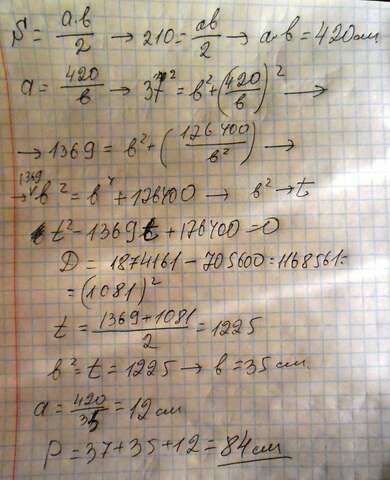 S = a.b/2 → 210 = ab/2 → a.b = 420 см
a = 420/b → 37² = b² + (420/b)² →
→ 1369 = b² + (126400/b²) →
→ 1369 b² = b⁴ + 126400 → b² → t
t² - 1369t + 176400 = 0
D = 1874161 - 705600 = 1168561 =
= (1081)²
t = 1369 + 1081/2 = 1225
b² = t = 1225 → b = 35 см
a = 420/35 = 12 см
P = 37 + 35 + 12 = 84 см